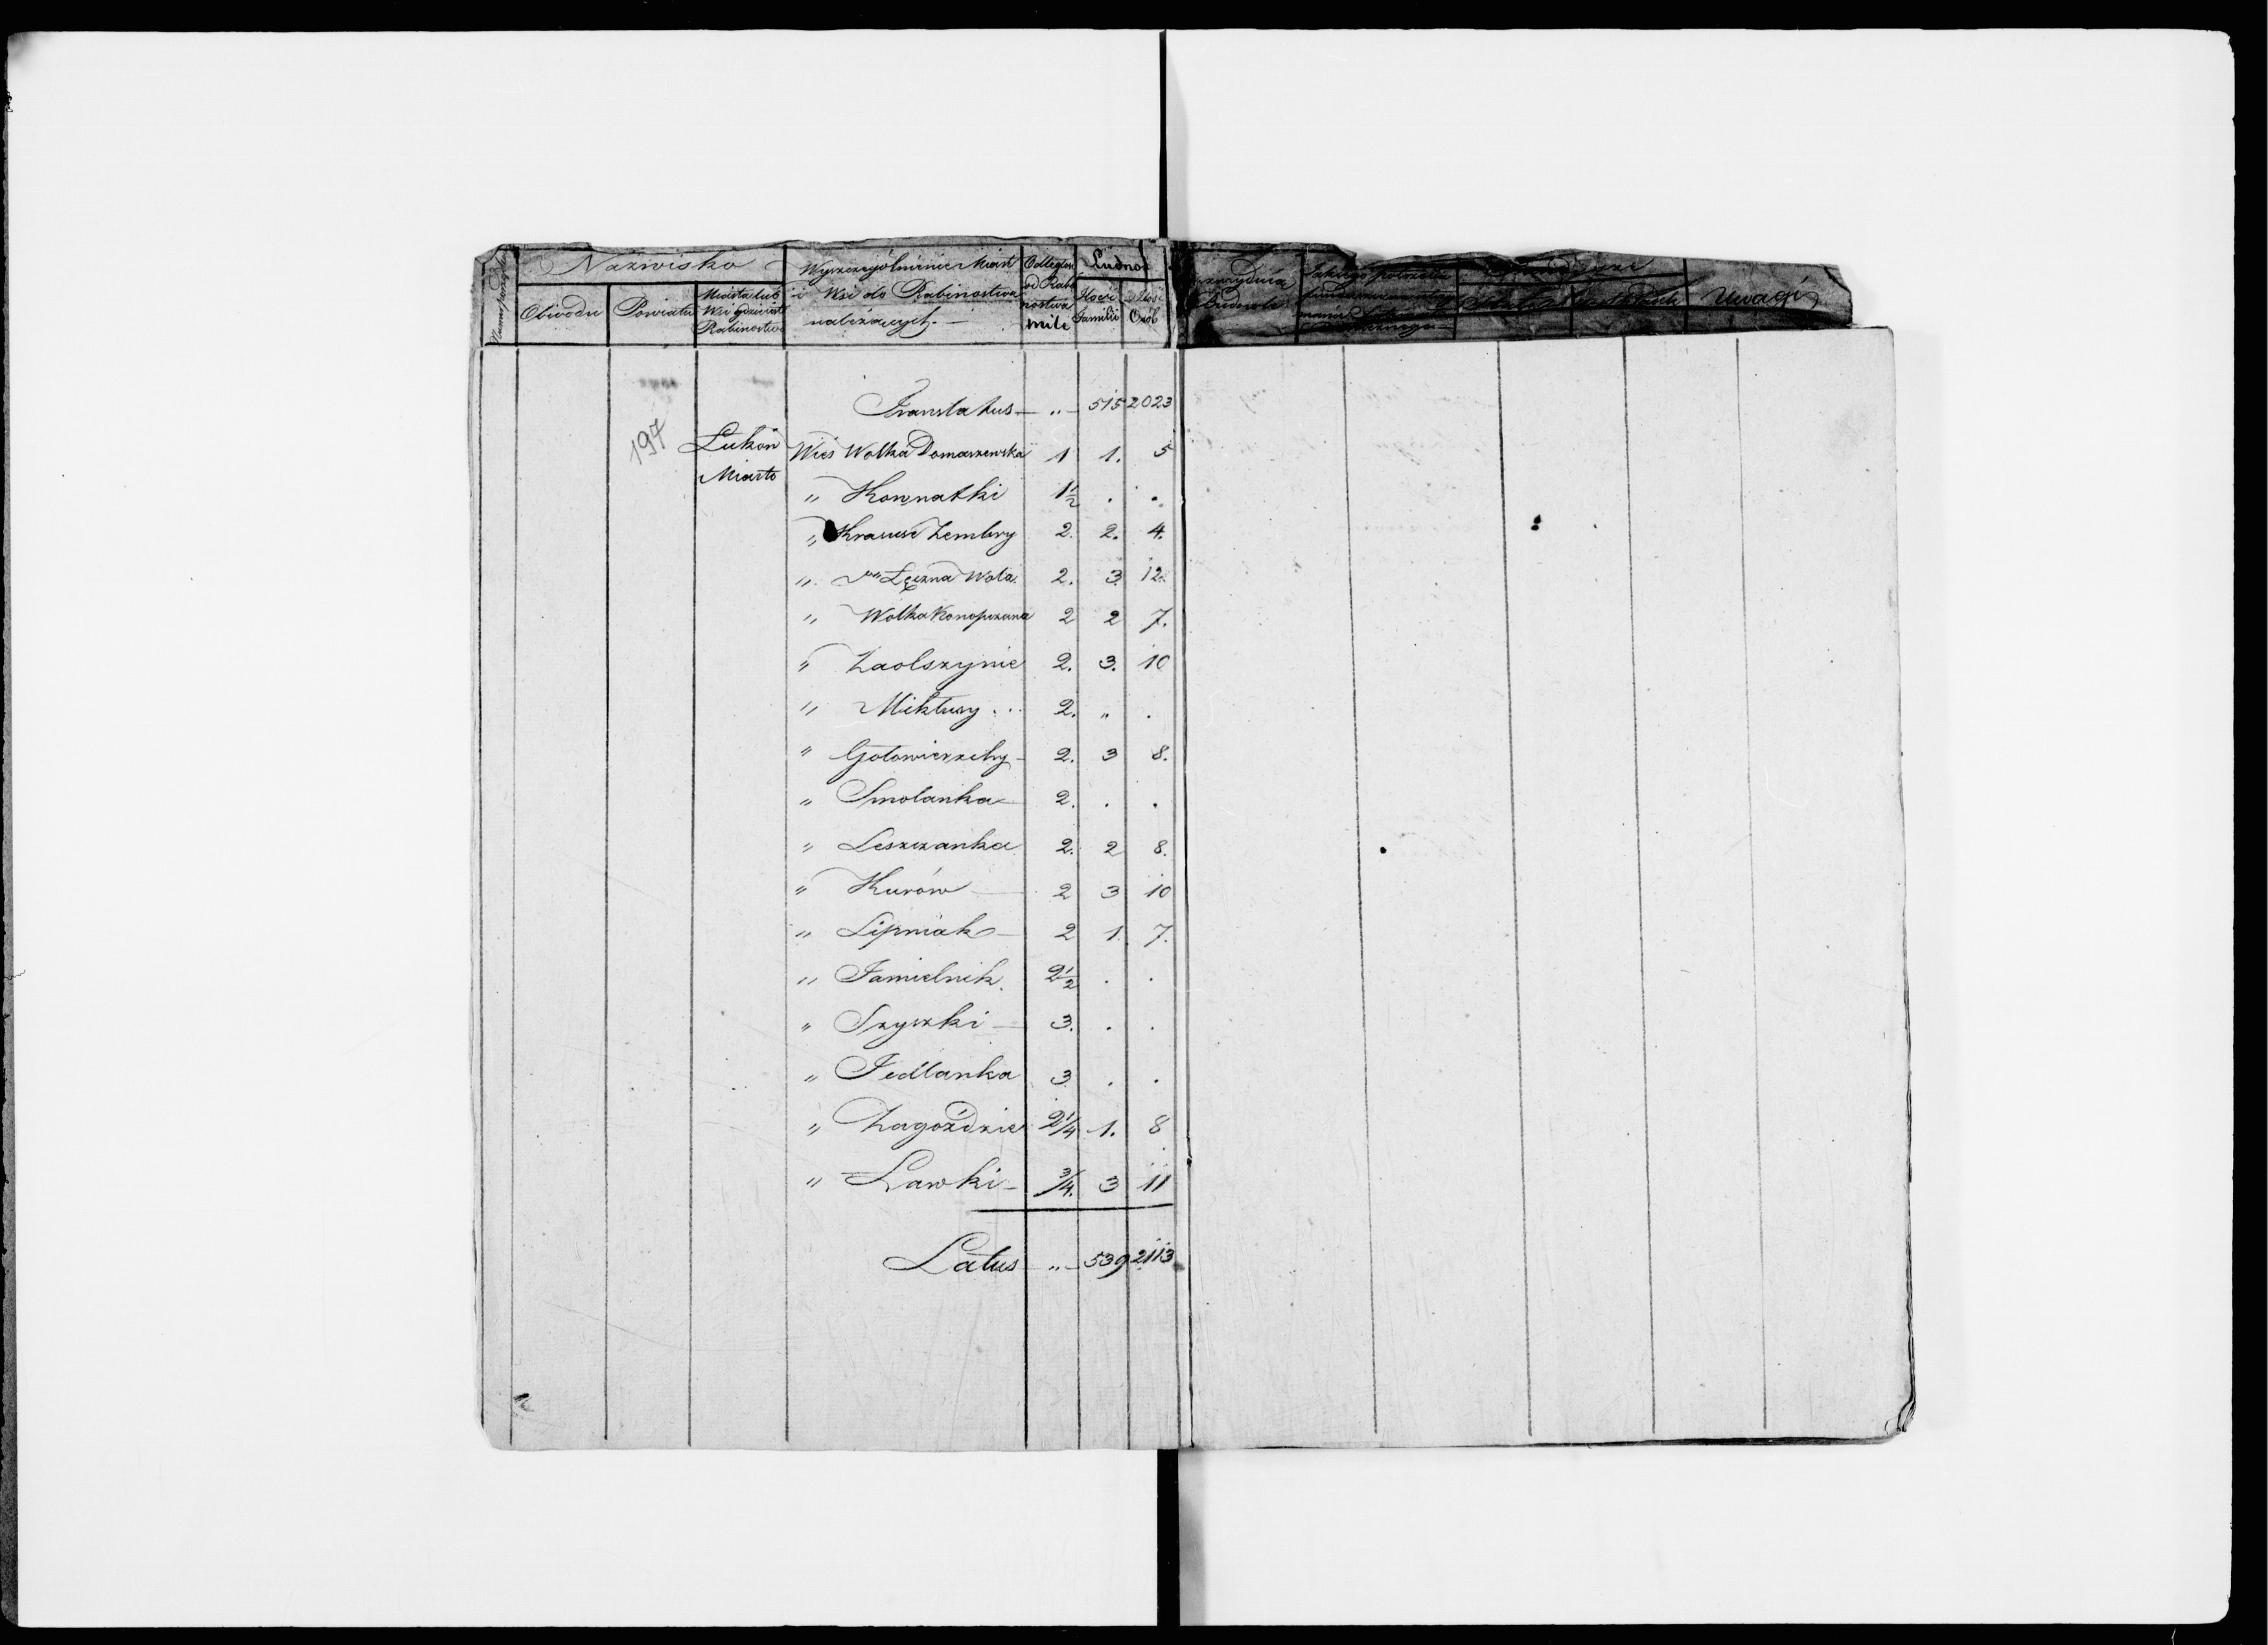 Nazwisko
Obwodu Powiatu Miasta lub Wsi gdzie jest Rabinostwo
Wyszczególnienie Miast
i Wsi do Rabinostwa
należących.
Odległość od Rabinostwa mile
Ludność
Ilość Familii Ilość Osób
Uwagi
Translatus — „ — 515 2023
197
Łukow Miasto
Wieś Wolka Domaszewska 1 1. 5
„ Kownatki 1½ . .
„ Krasuse Zembry 2. 2. 4.
„ Łęczna Wola 2. 3. 12.
„ Wolka Konopczana 2 2 7.
„ Zaolszynie 2. 3. 10
„ Mikłusy 2. „ .
„ Gołowierzchy 2. 3 8.
„ Smolanka 2. . .
„ Leszczanka 2. 2 8.
„ Kurów 2 3 10
„ Lipniak 2 1. 7.
„ Jamielnik 2½ . .
„ Szyszki 3. . .
„ Jedlanka 3. . .
„ Zagoździe 2¼ 1. 8
„ Ławki ¾. 3 11
Latus „ — 539 2113